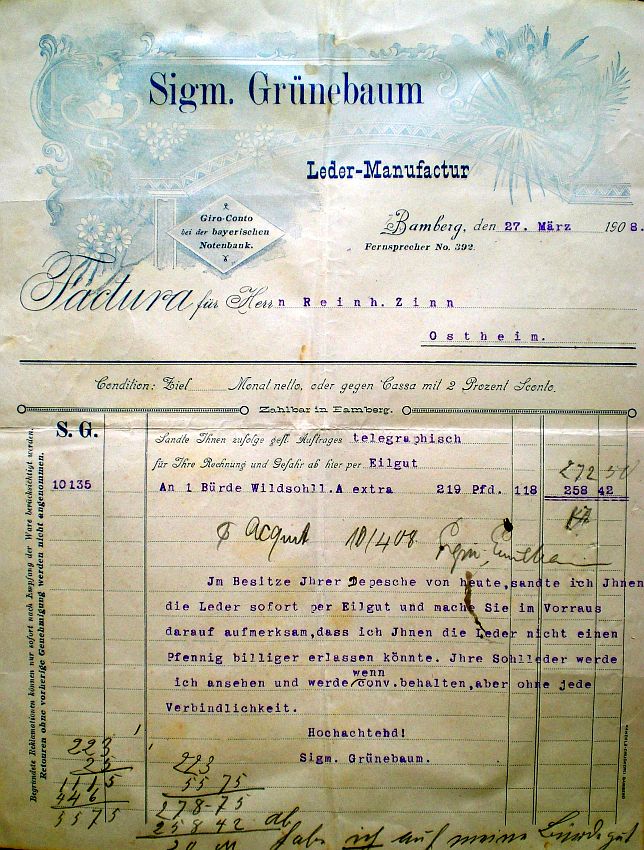 Sigm. Grünebaum
Leder-Manufactur
Giro-Conto
bei der bayerischen
Notenbank.
Bamberg, den 27. März 1908.
Fernsprecher No. 392.
Factura für Herrn Reinh. Zinn
Ostheim.
Condition: Ziel Monat netto, oder gegen Cassa mit 2 Prozent Sconto.
Zahlbar in Bamberg.
S. G.
Sandte Ihnen zufolge gefl. Auftrages telegraphisch
für Ihre Rechnung und Gefahr ab hier per Eilgut
272
10135 An 1 Bürde Wildsohll. A extra 219 Pfd. 118 258 42
Acquit 10/4 08.
Jm Besitze Jhrer Depesche von heute, sandte ich Jhnen
die Leder sofort per Eilgut und mache Sie im Vorraus
darauf aufmerksam, dass ich Jhnen die Leder nicht einen
Pfennig billiger erlassen könnte. Jhre Sohlleder werde
ich ansehen und werde wenn conv. behalten, aber ohne jede
Verbindlichkeit.
Hochachtend!
Sigm. Grünebaum.
Begründete Reklamationen können nur sofort nach Empfang der Ware berücksichtigt werden.
Retouren ohne vorherige Genehmigung werden nicht angenommen.
223
25
1115
446
5575
223
55 75
278-75
258 42 ab
habe ich auf meine